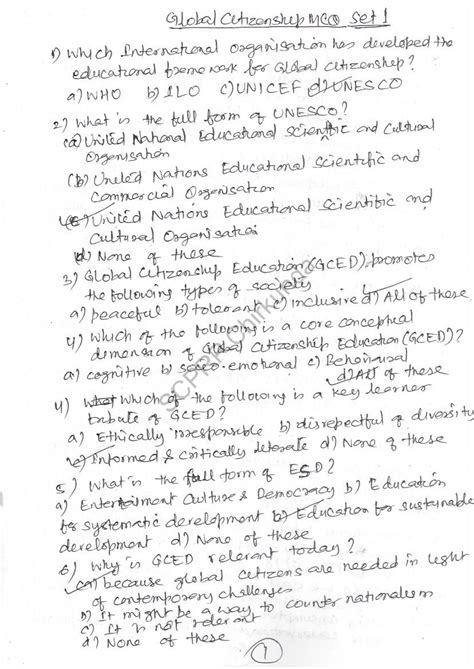 Global Citizenship MCQ Set 1
1) Which International organisation has developed the
educational frame work for Global citizenship?
a) WHO b) ILO c) UNICEF d) UNESCO
2) What is the full form of UNESCO?
(a) United National Educational Scientific and Cultural
Organisation
(b) United Nations Educational Scientific and
Commercial Organisation
(c) United Nations Educational Scientific and
Cultural Organisation
(d) None of these
3) Global Citizenship Education (GCED) promotes
the following types of society
a) peaceful b) tolerant c) inclusive d) All of these
4) Which of the following is a core conceptual
dimension of Global Citizenship Education (GCED)?
a) cognitive b) socio-emotional c) Behavioural
d) All of these
4) What Which of the following is a key learner
tribute of GCED?
a) Ethically irresponsible b) disrespectful of diversity
c) Informed & critically literate d) None of these
5) What is the full form of ESD?
a) Entertainment Culture & Democracy b) Education
for systematic development c) Education for sustainable
development d) None of these
6) Why is GCED relevant today?
(a) because global citizens are needed in light
of contemporary challenges
b) It might be a way to counter nationalism
c) It is not relevant
d) None of these
1